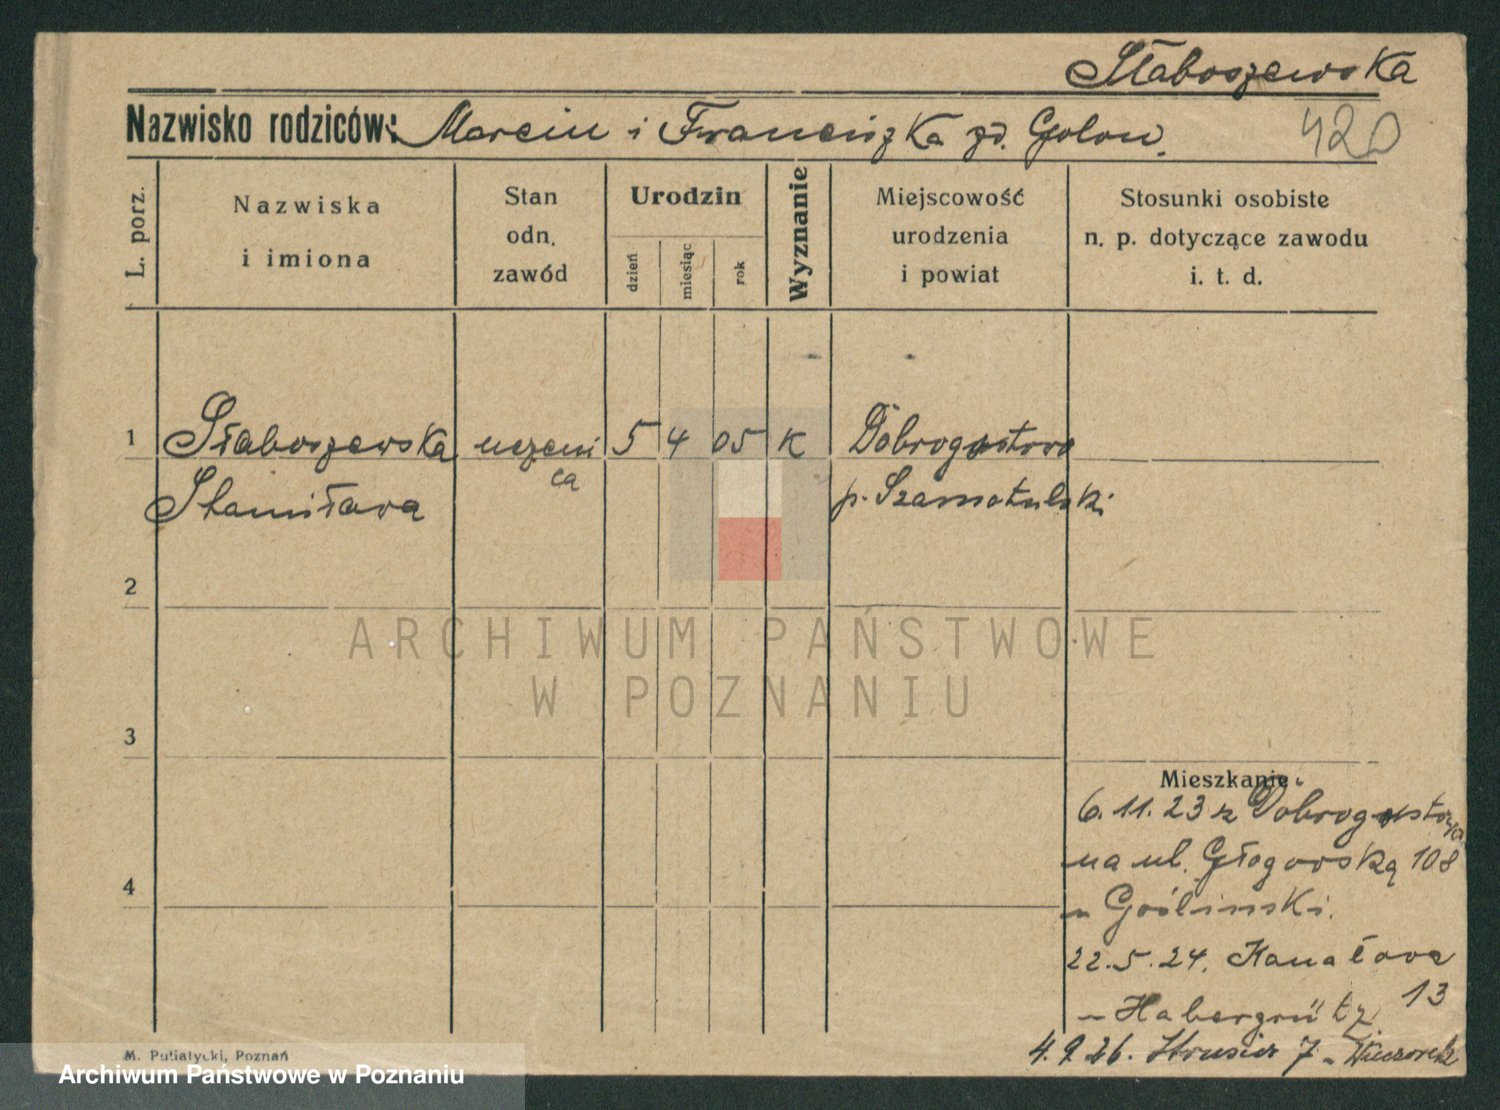 Słaboszewska
Nazwisko rodziców: Marcin i Franciszka zd. Golon.
420
L. porz.
Nazwiska
i imiona
Stan
odn.
zawód
Urodzin
dzień
miesiąc
rok
Wyznanie
Miejscowość
urodzenia
i powiat
Stosunki osobiste
n. p. dotyczące zawodu
i. t. d.
1 Słaboszewska uczeni 5 4 05 K Dobrogostowo
Stanisława ca p. Szamotulski
2
ARCHIWUM PAŃSTWOWE
W POZNANIU
3
Mieszkanie
6.11.23 z
na ul. Głogowską 108
u Gośliński.
22.5.24. Kanałowa
13
u Habergrütz
4.9.26. 7 u Wieczorek
4
M. Putiatycki, Poznań
Archiwum Państwowe w Poznaniu